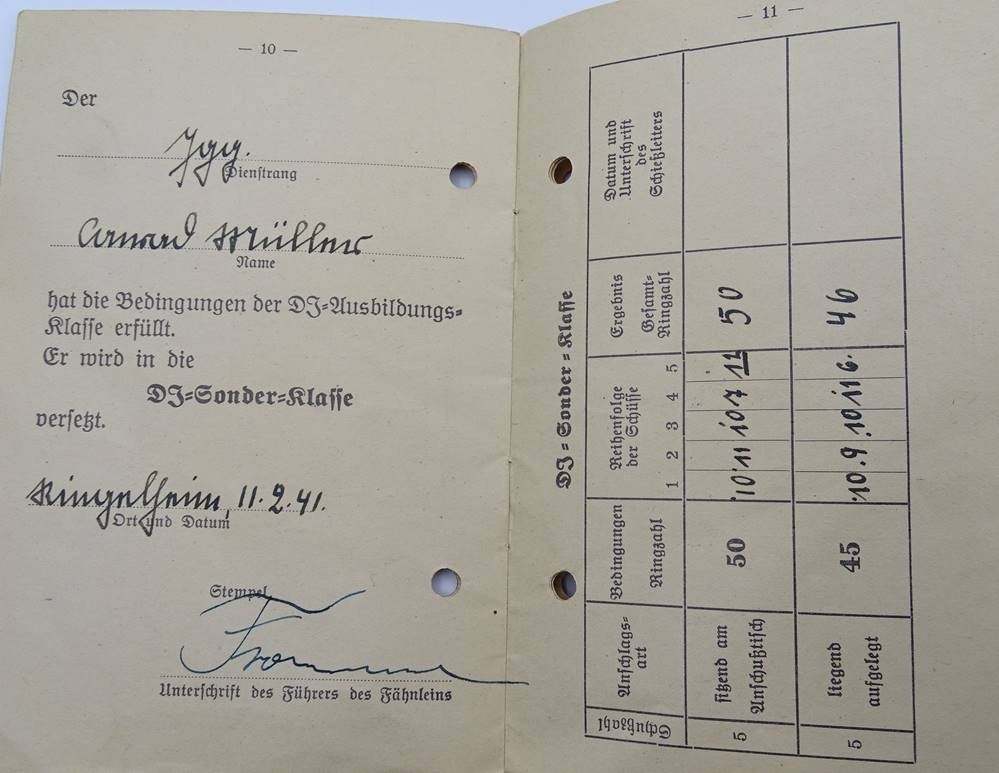 — 10 —
Der
Jgg.
Dienstrang
Conrad Müller
Name
hat die Bedingungen der DJ=Ausbildungs=
Klasse erfüllt.
Er wird in die
DJ=Sonder=Klasse
versetzt.
Ringelheim, 11.2.41.
Ort und Datum
Stempel
Unterschrift des Führers des Fähnleins
— 11 —
DJ=Sonder=Klasse
Schußzahl
Anschlags=
art
Bedingungen
Ringzahl
Reihenfolge
der Schüsse
1 2 3 4 5
Ergebnis
Gesamt=
Ringzahl
Datum und
Unterschrift
des
Schießleiters
5
sitzend am
Anschußtisch
50
10 11 10 7 12
50
5
liegend
aufgelegt
45
10. 9. 10 11 6.
46